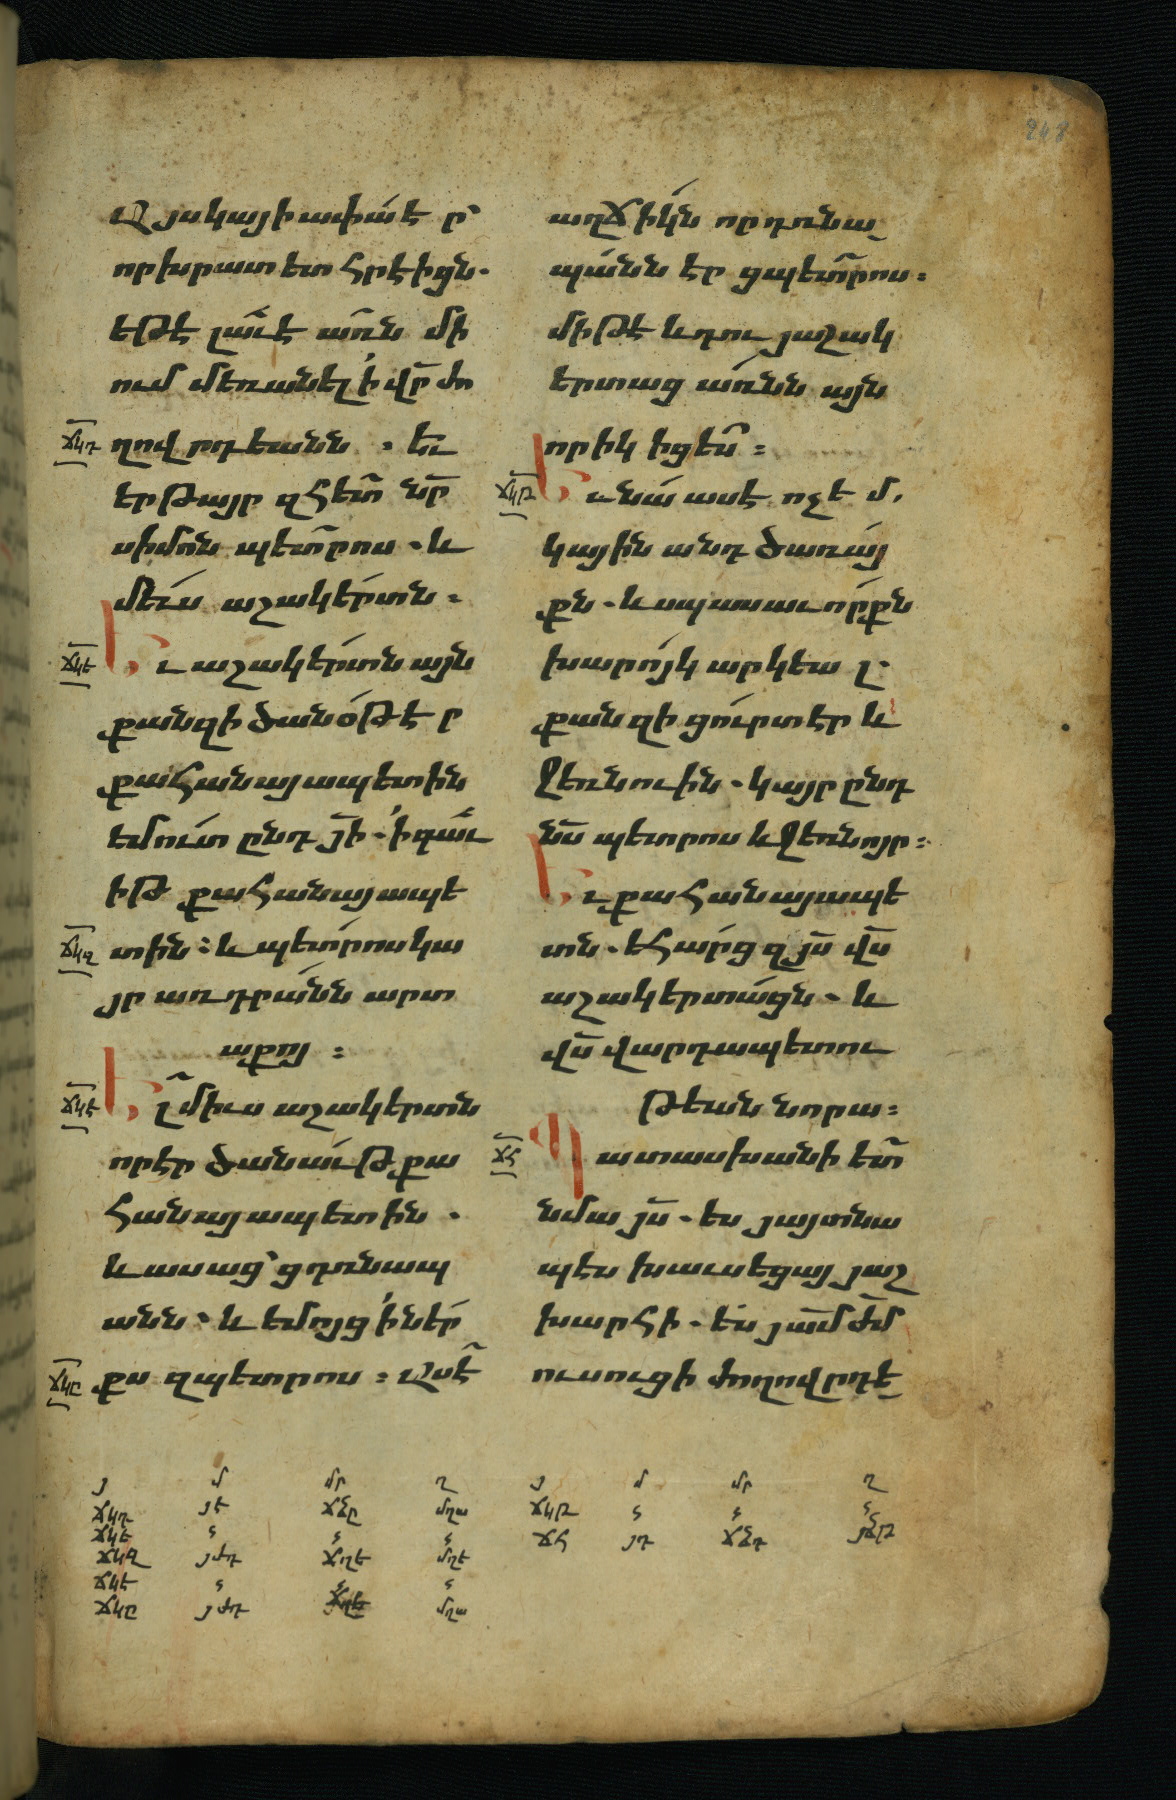 Այսկայիափա՛է ր՝
որխրատետ հրէիցն.
եթէ լա՛ւէ առն մի
ում մեռանել ի վր ժո
ճկդ ղովրդեանն . եւ
երթայր զհետ նր
սիմոն պետրոս . և
մեւս աշակերտն :
ճկե Եւ աշակերտն այն
քանզի ծանօթէ ր
քահանայապետին
եմուտ ընդ յի . ի գաւ
իթ քահանայապե
ճկզ տին : և պետրոս կա
յր առդրանն արտ
աքոյ :
ճկէ Ել միւս աշակերտն
որէր ծանաւթ քա
հանայապետին .
և ասաց՝ ցդռնապ
անն . և եմոյց ի ներ
ճկը քս զպետրոս : Ասէ
աղջիկն որդռնա
պանն էր ցպետրոս :
միթէ և դու յաշակ
երտաց առնն այն
որիկ իցես :
ճկթ Եւ նա ասէ ոչ է մ.
կային անդ ծառայ
քն . և սպասաւորքն
խարոյկ արկեա լ .
քանզի ցուրտ էր և
ջեռնուին . կայր ընդ
նս պետրոս և ջեռնոյր :
Եւ քահանայապե
տն . եհարց զյս վս
աշակերտացն . և
վս վարդապետու
թեան նորա :
ճհ Պատասխանի ետ
նմա յս . ես յայտնա
պէս խաւսեցայ յաշ
խարհի . ես յամ ժմ
ուսուցի ժողովրդե
յ մ մր ղ
ճկդ յէ ճձը մղա
ճկե
ճկզ յժդ ճղե մղե
ճկէ
ճկը յժդ մղա
յ մ մր ղ
ճկթ
ճհ յդ ճձդ յձթ
248